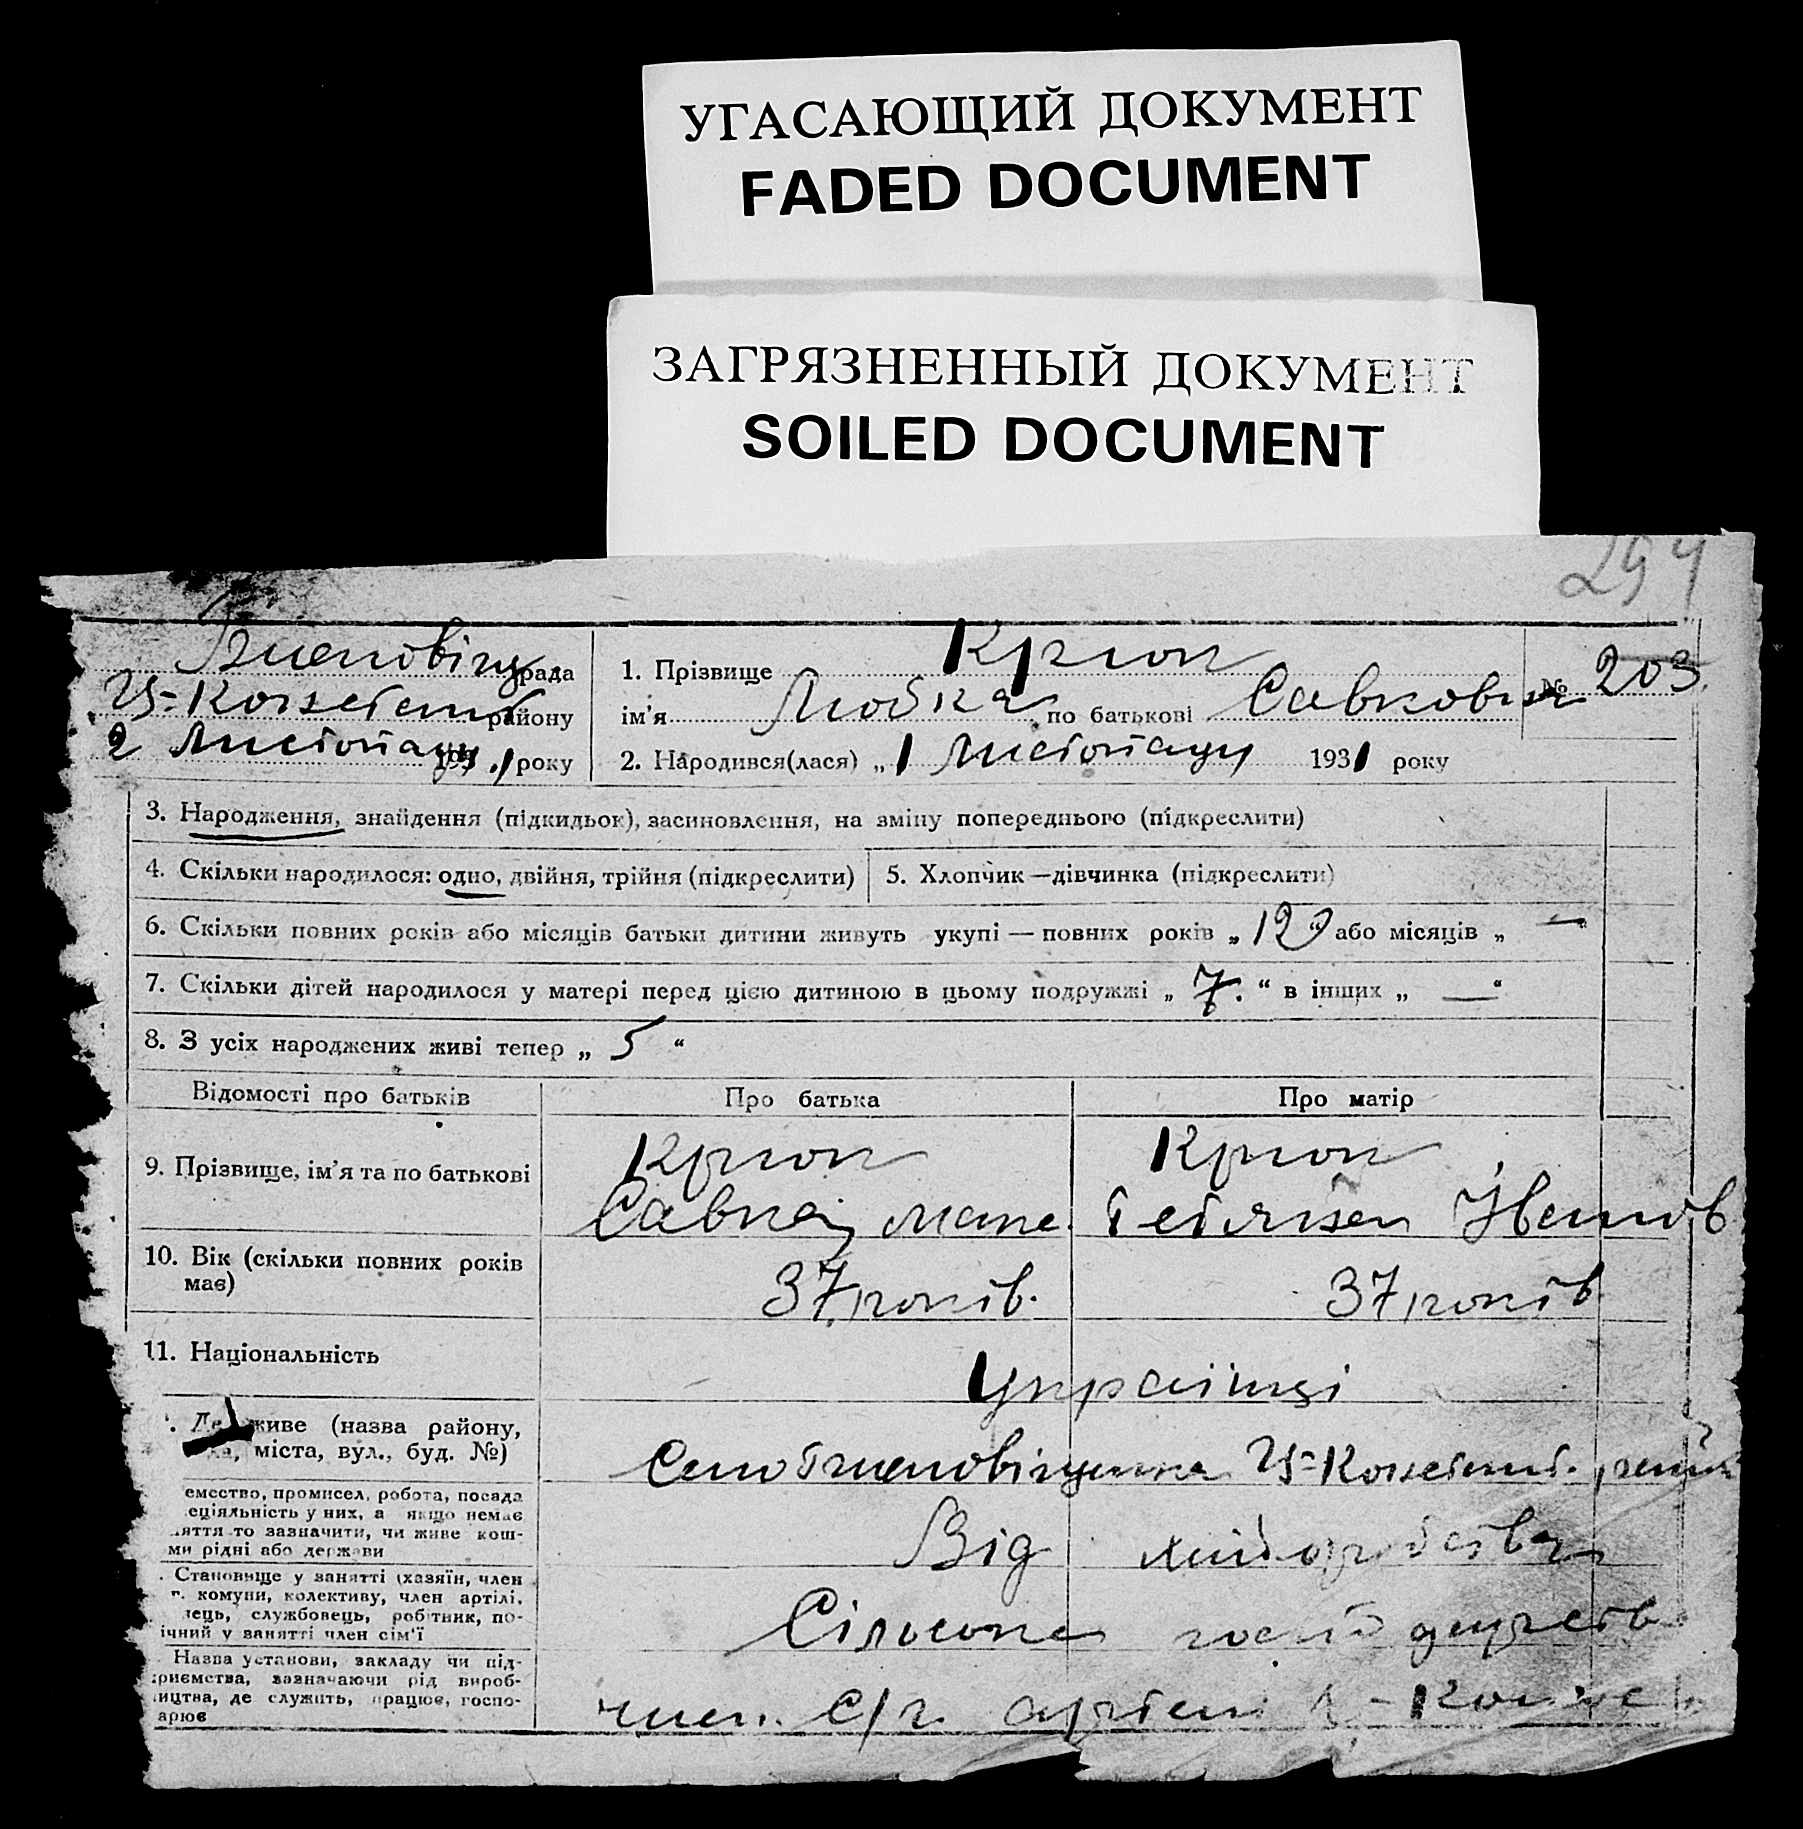 УГАСАЮЩИЙ ДОКУМЕНТ
FADED DOCUMENT
ЗАГРЯЗНЕННЫЙ ДОКУМЕНТ
SOILED DOCUMENT
294
рада
району
2 Листопаду 1931 року
1. Прізвище Крюк
ім'я Любка по батькові Савковна
№ 203.
2. Народився(лася) „ 1 Листопаду 1931 року
3. Народження, знайдення (підкидьок), засиновлення, на зміну попереднього (підкреслити)
4. Скільки народилося: одно, двійня, трійня (підкреслити)
5. Хлопчик—дівчинка (підкреслити)
6. Скільки повних років або місяців батьки дитини живуть укупі — повних років „ 12 “ або місяців „ — “
7. Скільки дітей народилося у матері перед цією дитиною в цьому подружжі „ 7. “ в інших „ — “
8. З усіх народжених живі тепер „ 5 “
Відомості про батьків
Про батька
Про матір
9. Прізвище, ім'я та по батькові
Крюк
Крюк
Савка
10. Вік (скільки повних років має)
37 років.
37 років
11. Національність
Українці
живе (назва району,
міста, вул., буд. №)
Село
емество, промисел, робота, посада
еціяльність у них, а якщо немає
яття-то зазначити, чи живе кош-
ми рідні або держави
Від
Становище у занятті (хазяїн, член
комуни, колективу, член артілі,
лець, службовець, робітник, по-
ічний у занятті член сім'ї
Назва установи, закладу чи під-
приємства, зазначаючи рід вироб-
ництва, де служить, працює, госпо-
арює
член. С/г. артелі